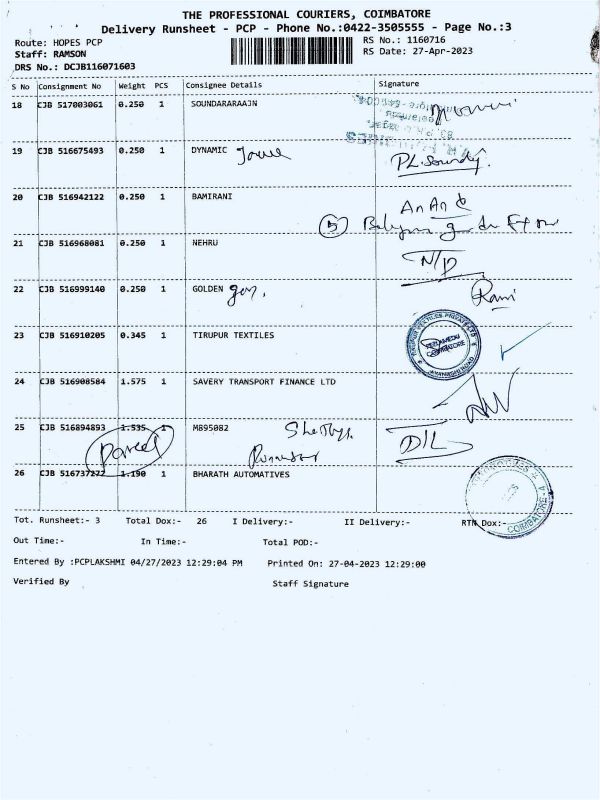 THE PROFESSIONAL COURIERS, COIMBATORE
Delivery Runsheet - PCP - Phone No.:0422-3505555 - Page No.:3
Route: HOPES PCP RS No.: 1160716
Staff: RAMSON RS Date: 27-Apr-2023
DRS No.: DCJB116071603
S No Consignment No Weight PCS Consignee Details Signature
18 CJB 517003061 0.250 1 SOUNDARARAAJN
19 CJB 516675493 0.250 1 DYNAMIC
20 CJB 516942122 0.250 1 BAMIRANI
21 CJB 516968081 0.250 1 NEHRU N/D
22 CJB 516999140 0.250 1 GOLDEN Rani
23 CJB 516910205 0.345 1 TIRUPUR TEXTILES
24 CJB 516908584 1.575 1 SAVERY TRANSPORT FINANCE LTD
25 CJB 516894893 1.535 1 M895082 D/L
Parcel
26 CJB 516737272 1.190 1 BHARATH AUTOMATIVES
COIMBATORE
Tot. Runsheet:- 3 Total Dox:- 26 I Delivery:- II Delivery:- RTN Dox:-
Out Time:- In Time:- Total POD:-
Entered By :PCPLAKSHMI 04/27/2023 12:29:04 PM Printed On: 27-04-2023 12:29:00
Verified By Staff Signature